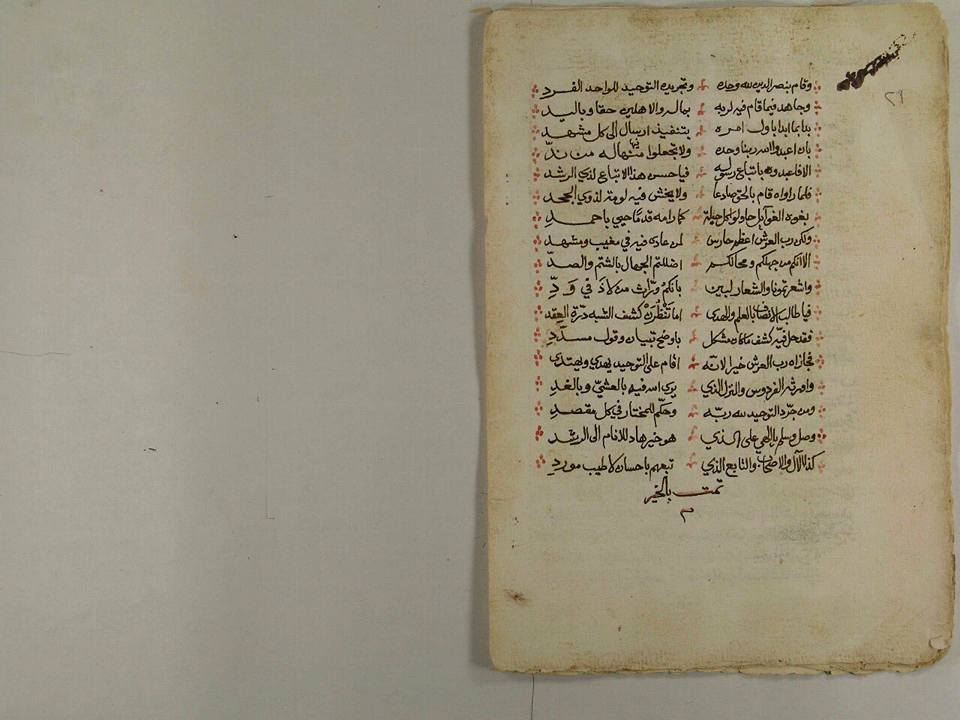 ٢٩
وقام بنصر الدين لله وحده وتجريده التوحيد للواحد الفرد
وجاهد فيما قام فيه لربه بماله والاهلين حقا وباليد
باول امره بتنفيذ ارسال الى كل مشهد
بان اعبدوا لله ربنا وحده ولا تجعلوا منها له من ندّ
الا فاعبدوه باتباع رسوله فيا حسن هذا الاتباع لذي الرشد
فلما راواه قام بالحق صادعا ولا يخش فيه لومة لذوي الجحد
بغوه الغوآيل حاولوا كل حيلة كما رامه قدمًا حيي باحمد
ولكن رب العرش اعظم حارس لمن عادى فيه في مغيب ومشهد
الا انكم من جهلكم ومحالكم اضللتم الجهال بالشتم والصدّ
واشعرتمونا والشعار لبين بانكم ورّاث من لاذ في وَدِّ
فيا طالب الانصاف بالعلم والهدى اما تنظرن كشف الشبه درّة العقد
فقد حل فيه كشف ما كان مشكل باوضح تبيان وقول مسدّد
فجازاه رب العرش خيرا لانّه اقام على التوحيد يهدي ويهتدى
واورثه الفردوس والنزل الذي يرى اسه فيه بالعشيّ وبالغد
ومن جرّد التوحيد لله ربّه وحكّم للمختار في كل مقصد
وصل وسلم يا الهي على الذي هو خير هاد للانام الى الرشد
كذا الآل والاصحاب والتابع الذي تبعهم باحسان لاطيب مورد
تمت بالخير
م